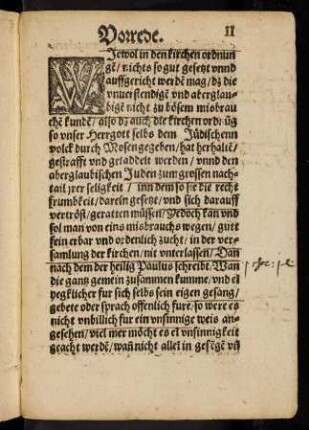 Vorrede. II
WJewol in den kirchen ordnun
gē / nichts so gut gesetzt vnnd
auffgericht werdē mag / dz die
vnuerstendigē vnd aberglau-
bigē nicht zu bösem misbrau
chē kundē / also dz auch die kirchen ordi
so vnser Herrgott selbs dem Jüdischenn
volck durch Mosen gegeben / hat
gestrafft vnd getaddelt werden / vnnd den
aberglaubischen Juden zum grossen nach-
tail jrer seligkeit / inn dem so sie die recht
frumbkeit / darein gesetzt / vnd sich darauff
vertröst / geratten müssen / Yedoch kan vnd
sol man von eins misbrauchs wegen / gutt
kein erbar vnd ordenlich zucht / in der ver-
samlung der kirchen / nit vnterlassen / Dan
nach dem der heilig Paulus schreibt / Wan
die gantz gemein zusammen kumme / vnd el
yegklicher fur sich selbs sein eigen gesang /
gebete oder sprach offenlich fure / so were es
nicht vnbillich fur ein vnsinnige weis an-
gesehen / viel mer möcht es el vnsinnigkeit
geacht werdē / wañ nicht allel in gesēgē vñ